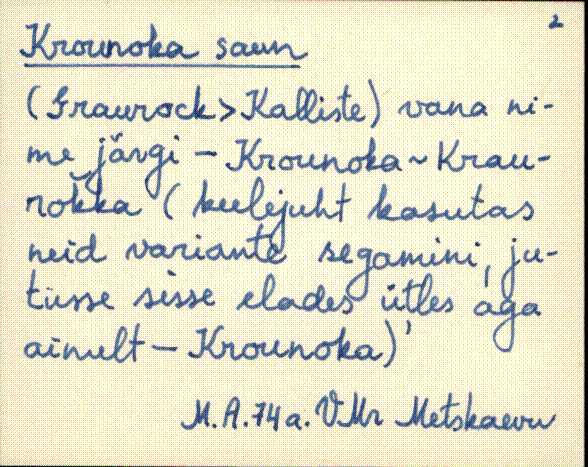 2
Krounoka saun
(Graurock>Kalliste) vana ni-
me järgi – Krounoka ~ Krau-
nokka (keelejuht kasutas
neid variante segamini, ju-
tusse sisse elades ütles aga
ainult – Krounoka)
M. A. 74 a. VMr Metskaevu